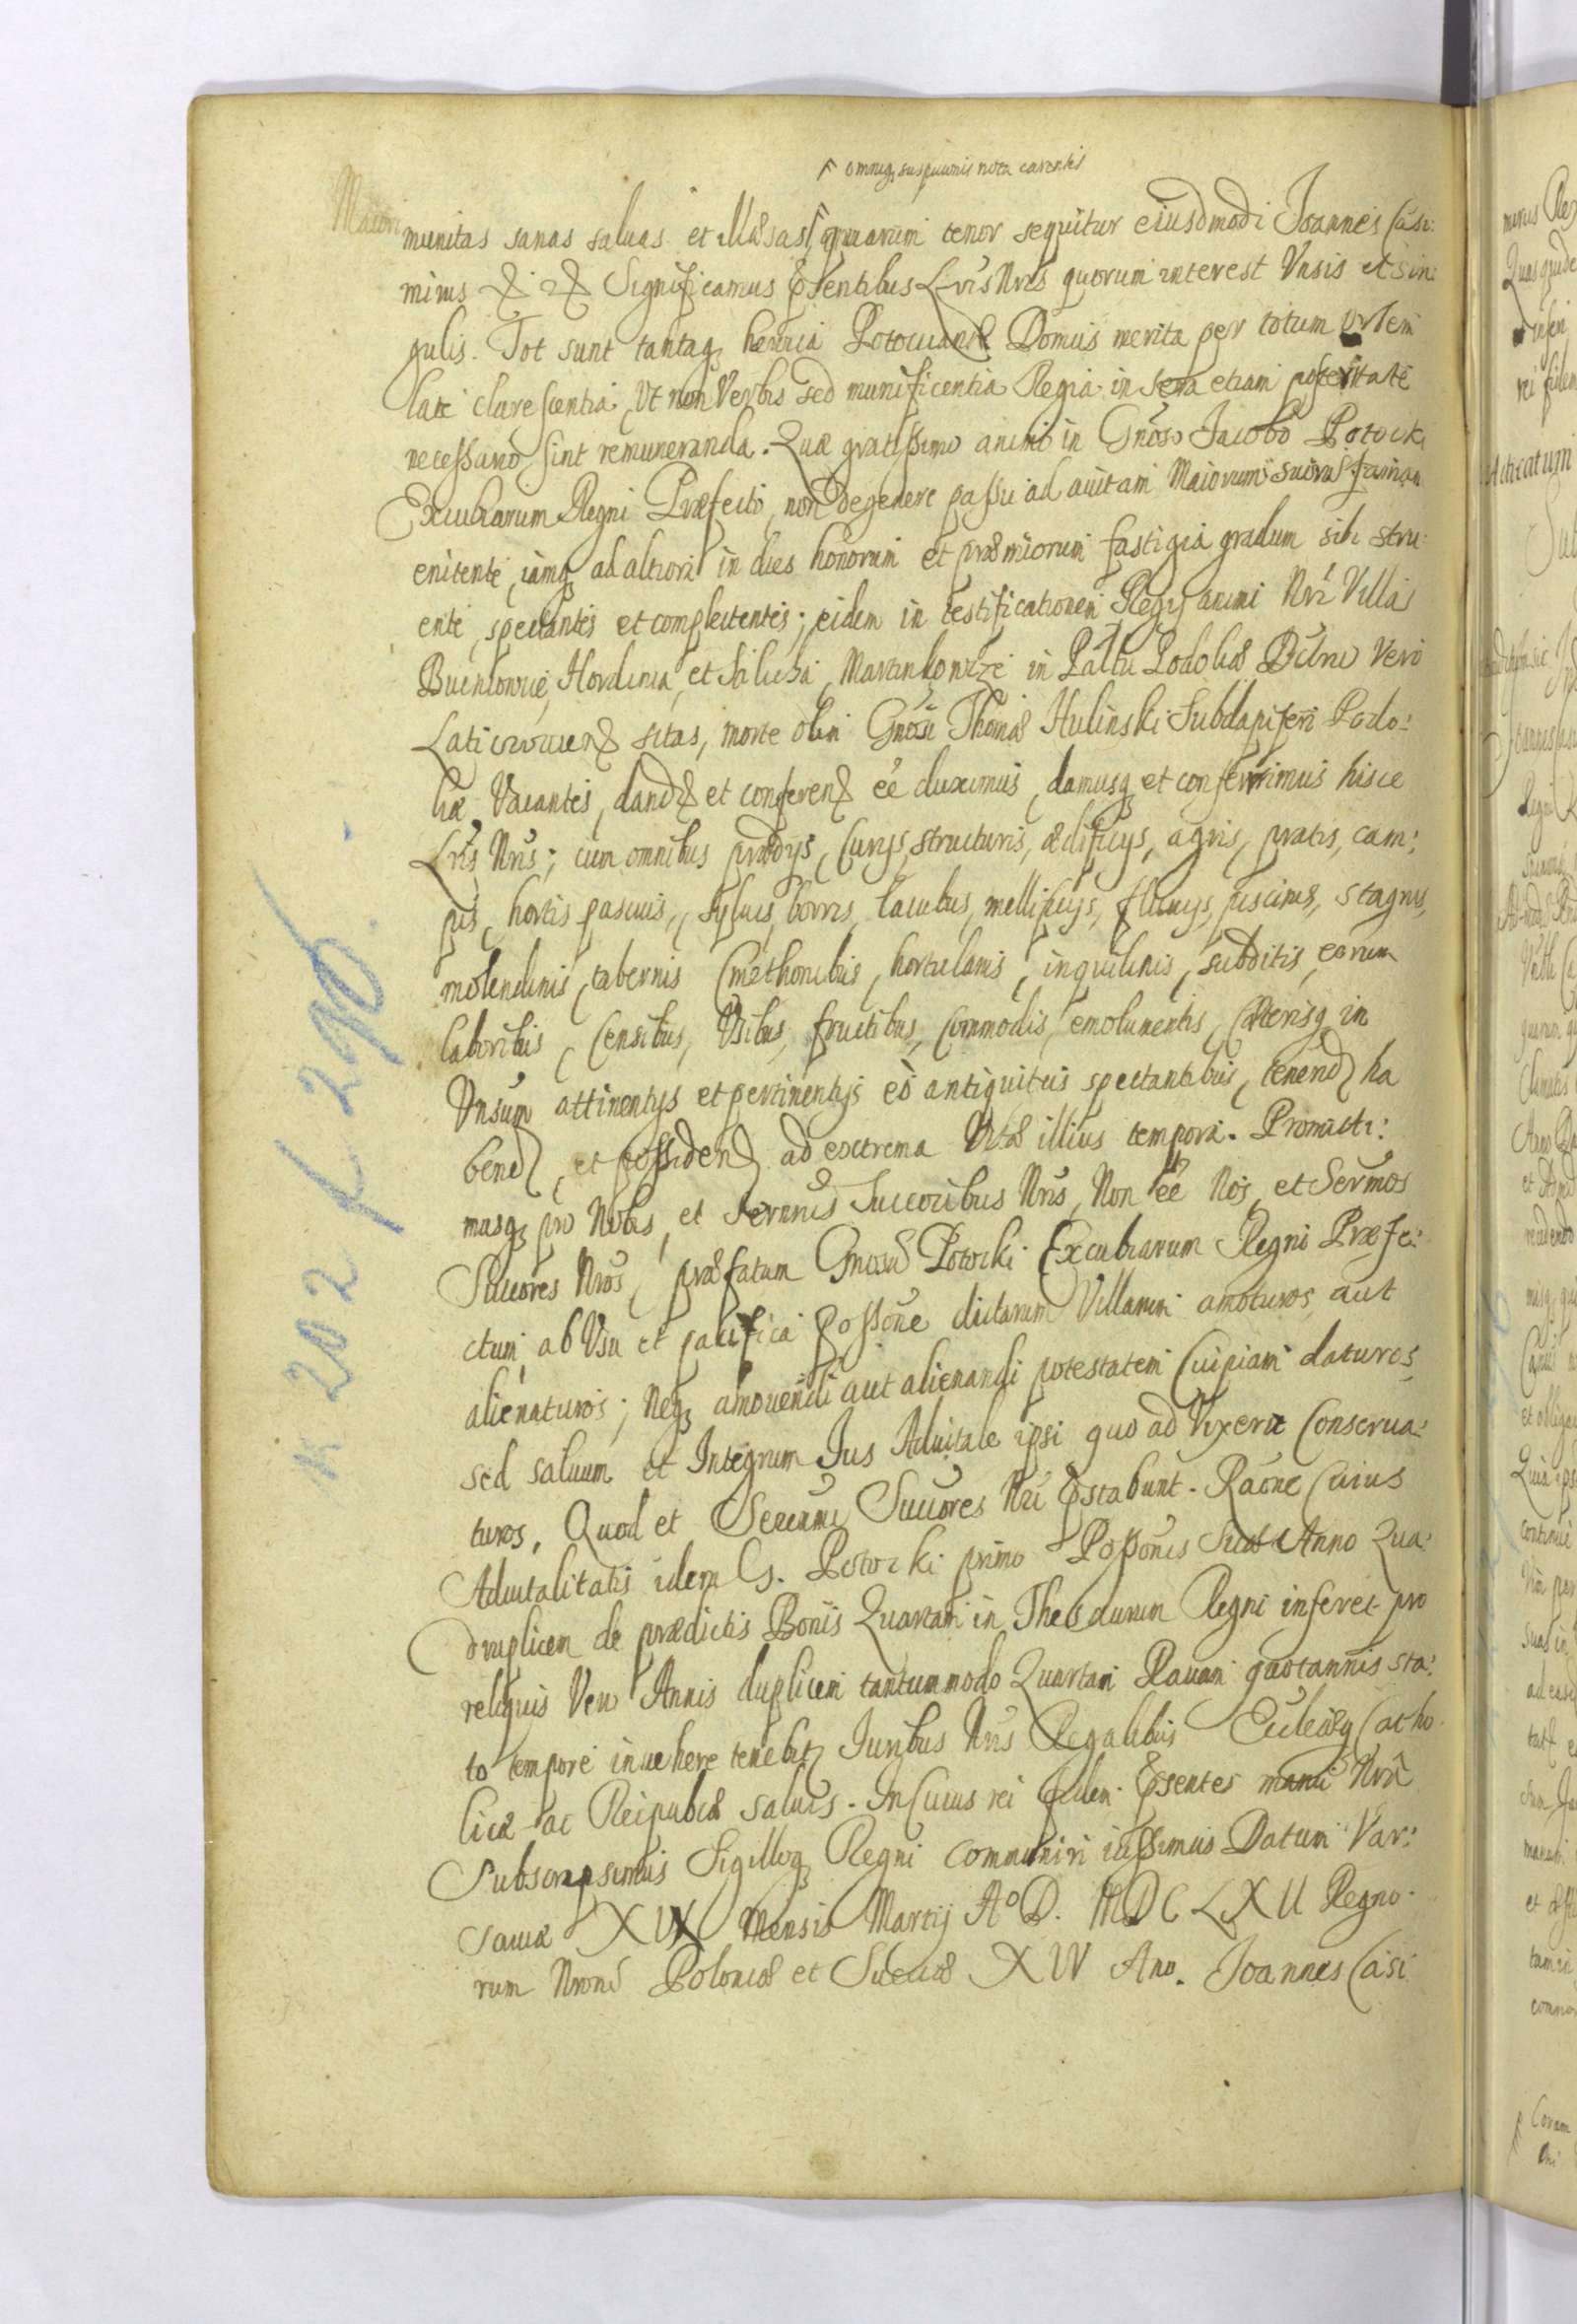 omniq suspicionis nota carentis
Maiori munitas sanas saluas et illæsas quarum tenor sequitur eiusdmodi Joannes Casi:
mirus & & Significamus præsentibus Lris Nris quorum interest Vnsis et sin:
gulis. Tot sunt tantaq Potocianæ Domus merita per totum orbem
late clarescentia, Vt non Verbis sed munificentia Regia in sera etiam posteritate
necessario sint remuneranda. Quæ gratissimo animo in Gnoso Jacobo Potocki
Excubiarum Regni Præfecto, non degenere passu ad auitam Maiorum suorum famam
enitente, iamq ad altiora in dies honorum et præmiorum fastigia gradum sibi stru:
ente, spectantes et complectentes; eidem in testificationem Regij animi Nri Villas
Hordinia, et in Pallu Podoliæ Dctu Vero
sitas, morte olim Gnosi Thomæ Hulinski Subdapiferi Podo:
liæ Vacantes, dand et conferend ee duximus, damusq et conferimus hisce
Lris Nris; cum omnibus prædijs, Curijs, structuris, ædificijs, agris, pratis, cam:
pis, hortis pascuis, syluis, borris, lacubus, mellificijs, fluuijs, piscinis, stagnis,
molendinis, tabernis Cmethonibus, hortulanis, inquilinis, subditis, eorum
laboribus, Censibus, Vsibus, fructibus, Commodis, emolumentis, Cæterisq in
Vnsum attinentijs et pertinentijs eo antiquitus spectantibus, tenend ha
bend, et possidend ad extrema Vitæ illius tempora. Promitti:
musq pro Nobis, et Serenris Succoribus Nris, Non ee Nos, et Sermos
Succores Nros, præfatum Gnosum Potocki Excubiarum Regni Præfe:
ctum, ab Vsu et pacifica possone dictarum Villarum amoturos aut
alienaturos; Neq amouendi aut alienandi potestatem Cuipiam daturos,
sed saluum et Integrum Jus Aduitale ipsi quo ad Vixerit Conserua:
turos. Quod et Serenmi Succores Nri præstabunt. Raone Cuius
Aduitalitatis idem G. Potocki primo Possonis Suæ Anno Qua:
druplicem de prædictis Bonis Quartam in Thesaurum Regni inferet pro
reliquis Vero Annis duplicem tantummodo Quartam Rauam quotannis sta:
to tempore inuehere tenebit Juribus Nris Regalibus Eccleiæq Catho
licæ ac Reipublcæ saluis. In Cuius rei fidem præsentes manu Nra
Subscripsimus Sigilloq Regni communiri iussimus Datum Var:
sauiæ XIX Mensis Martij Ao D. MDCLXII Regno
rum Nrorum Poloniæ et Sueciæ XIV Ano. Joannes Casi
K 202 f 290.